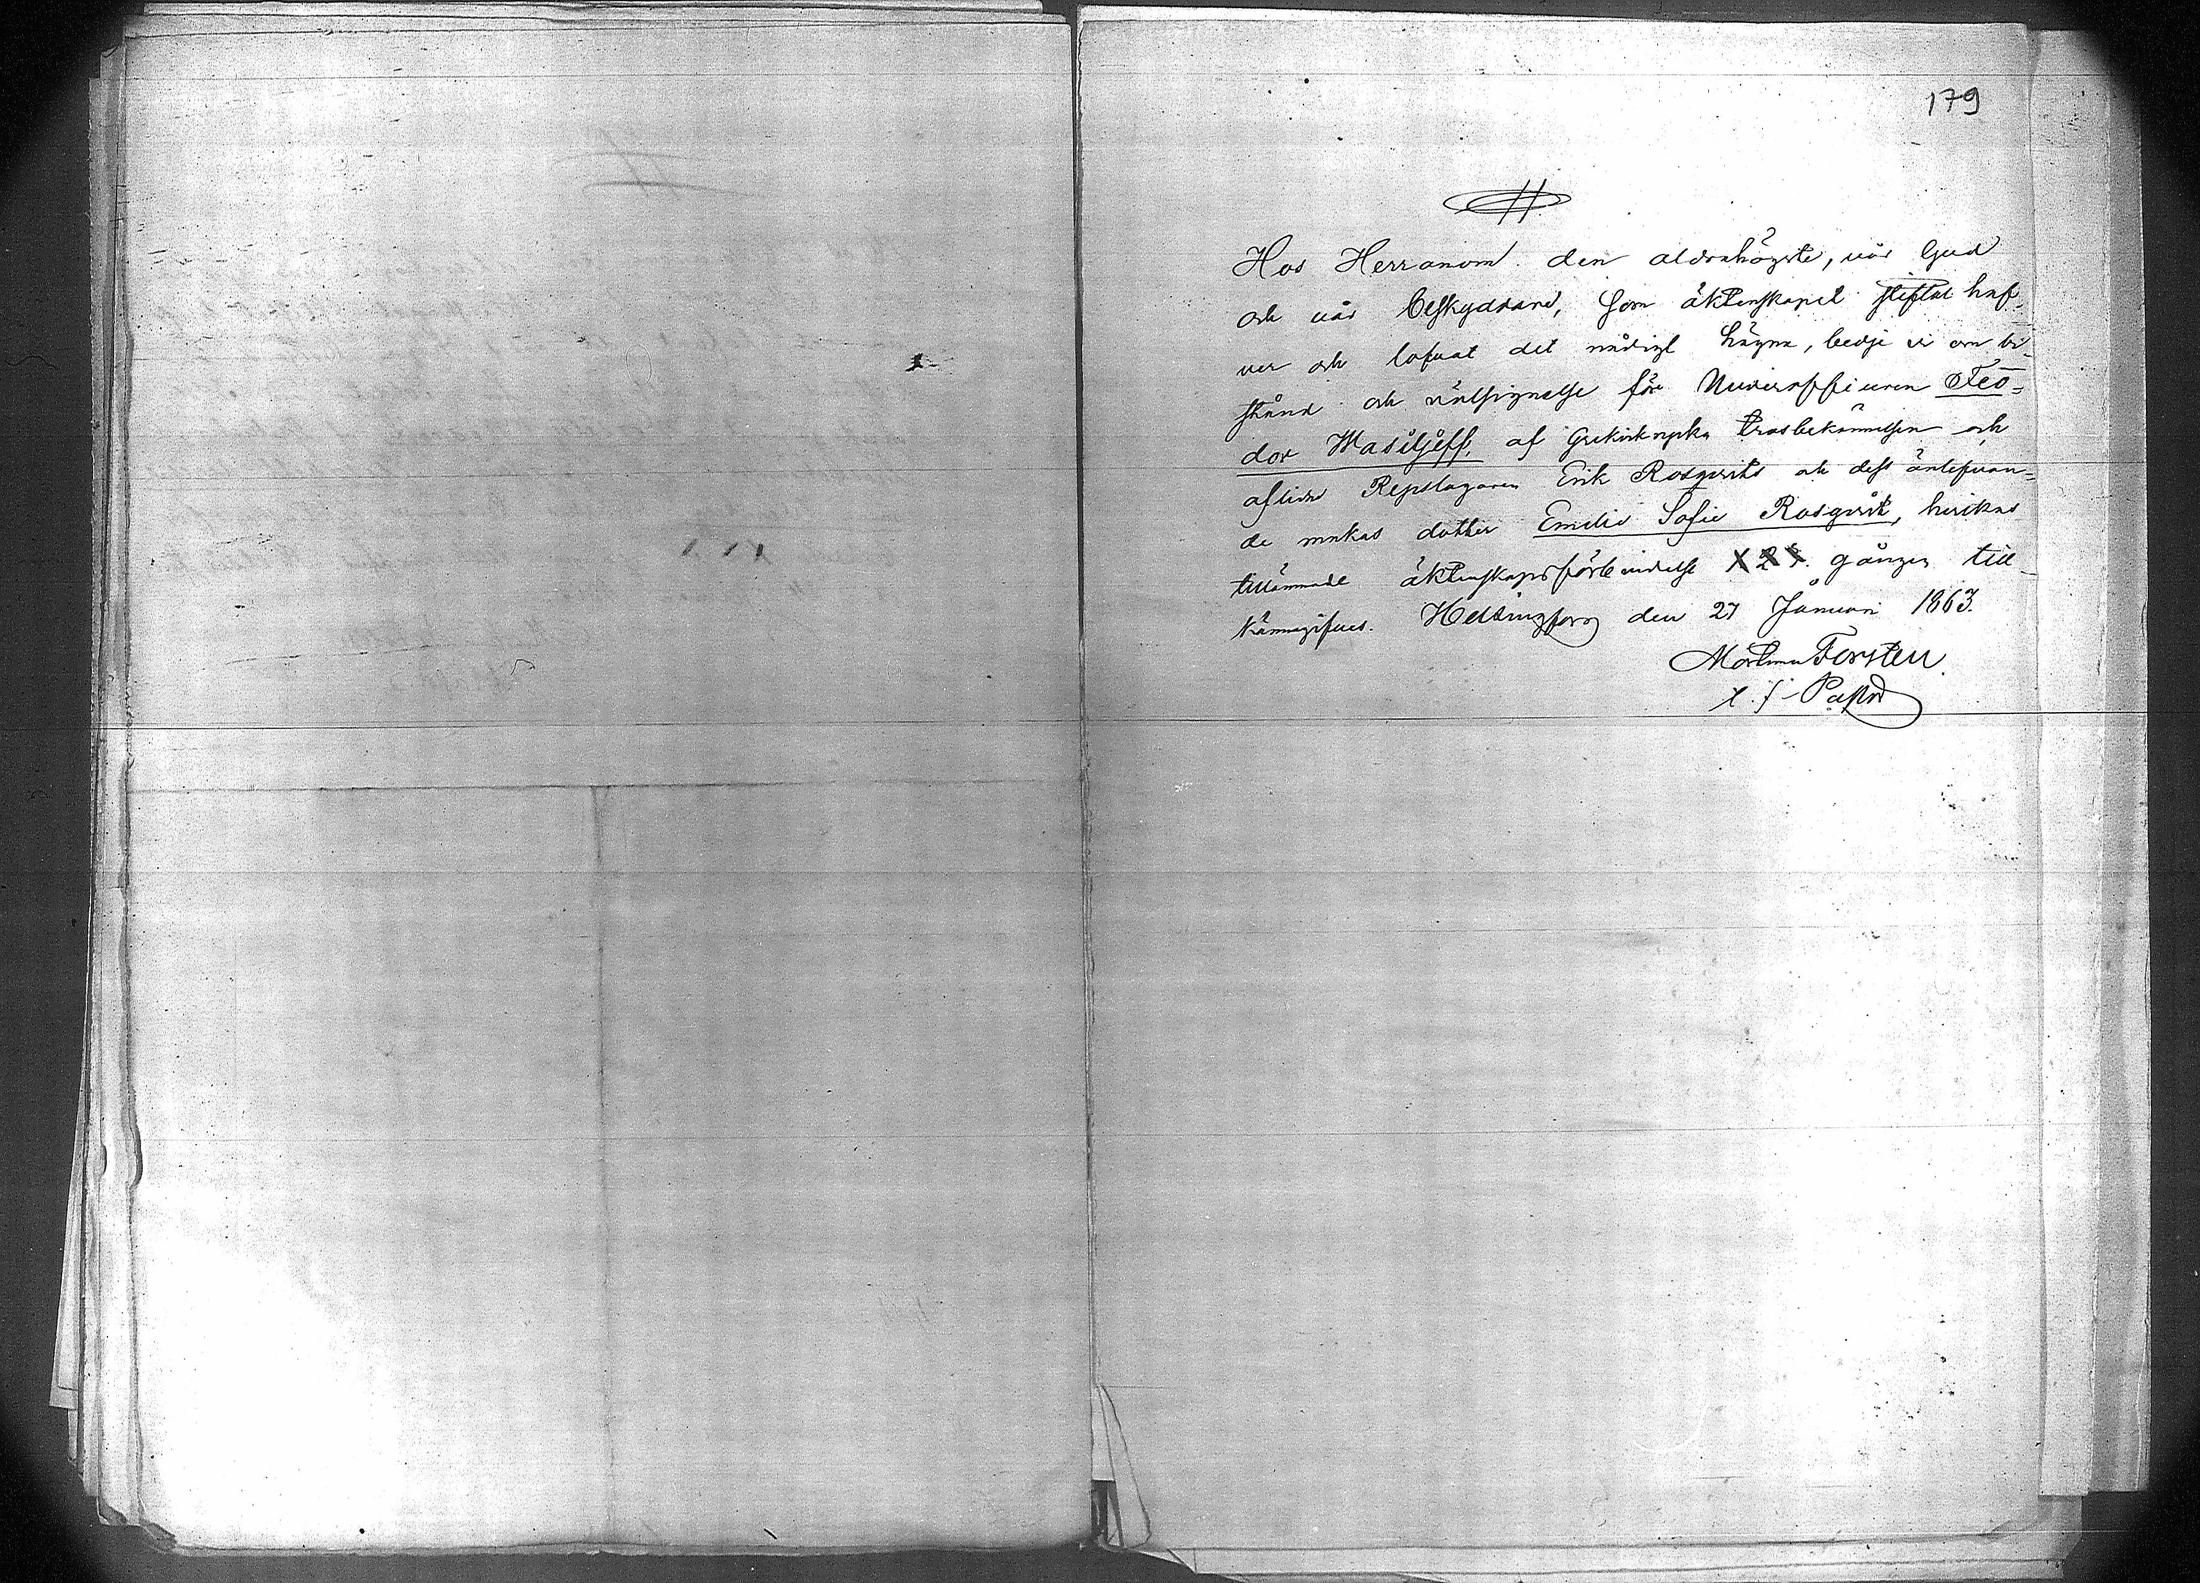 179
Hos Herranom den aldrahögste, vår Gud
och vår beskyddare, som äktenskapet stiftat haf-
ver och lofvat det nådigt hägna, bedje vi om bi-
stånd och välsignelse för Underofficeren Feo-
dor Wasiljeff, af Grekisk ryska trosbekännelsen och
aflidne Repslagaren Erik Rosqvists och dess änlefvan-
de enkas dotter Emilie Sofie Rosqvist, hvilkas
tillämnade äktenskapsförbindelse gången till-
kännagifves. Helsingfors den 27 Januari 1863.
Forsten
v. Pastor